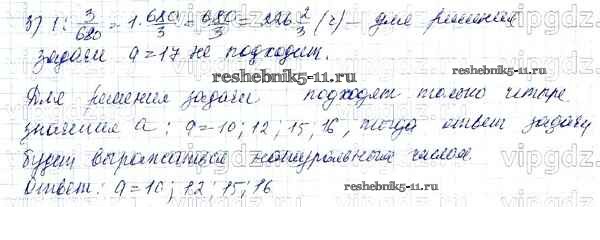 3) 1 : 3/680 = 1 · 680/3 = 680/3 = 226 2/3 (г) – для решения
задачи a = 17 не подходит.
reshebnik5-11.ru
Для решения задачи подходят только четыре
значения a: a = 10; 12; 15; 16, тогда ответ задачи
будет выражаться натуральным числом.
Ответ: a = 10; 12; 15; 16
reshebnik5-11.ru